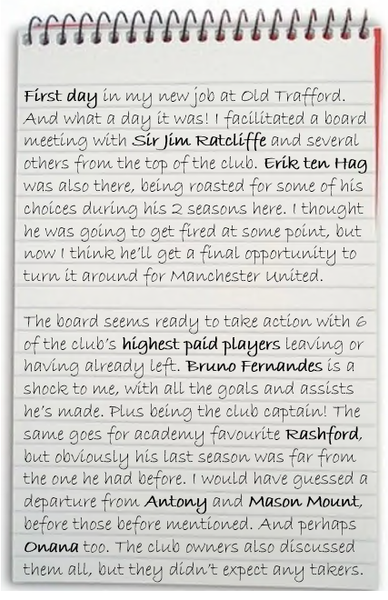 First day in my new job at Old Trafford.
And what a day it was! I facilitated a board
meeting with Sir Jim Ratcliffe and several
others from the top of the club. Erik ten Hag
was also there, being roasted for some of his
choices during his 2 seasons here. I thought
he was going to get fired at some point, but
now I think he'll get a final opportunity to
turn it around for Manchester United.
The board seems ready to take action with 6
of the club's highest paid players leaving or
having already left. Bruno Fernandes is a
shock to me, with all the goals and assists
he's made. Plus being the club captain! The
same goes for academy favourite Rashford,
but obviously his last season was far from
the one he had before. I would have guessed a
departure from Antony and Mason Mount,
before those before mentioned. And perhaps
Onana too. The club owners also discussed
them all, but they didn't expect any takers.